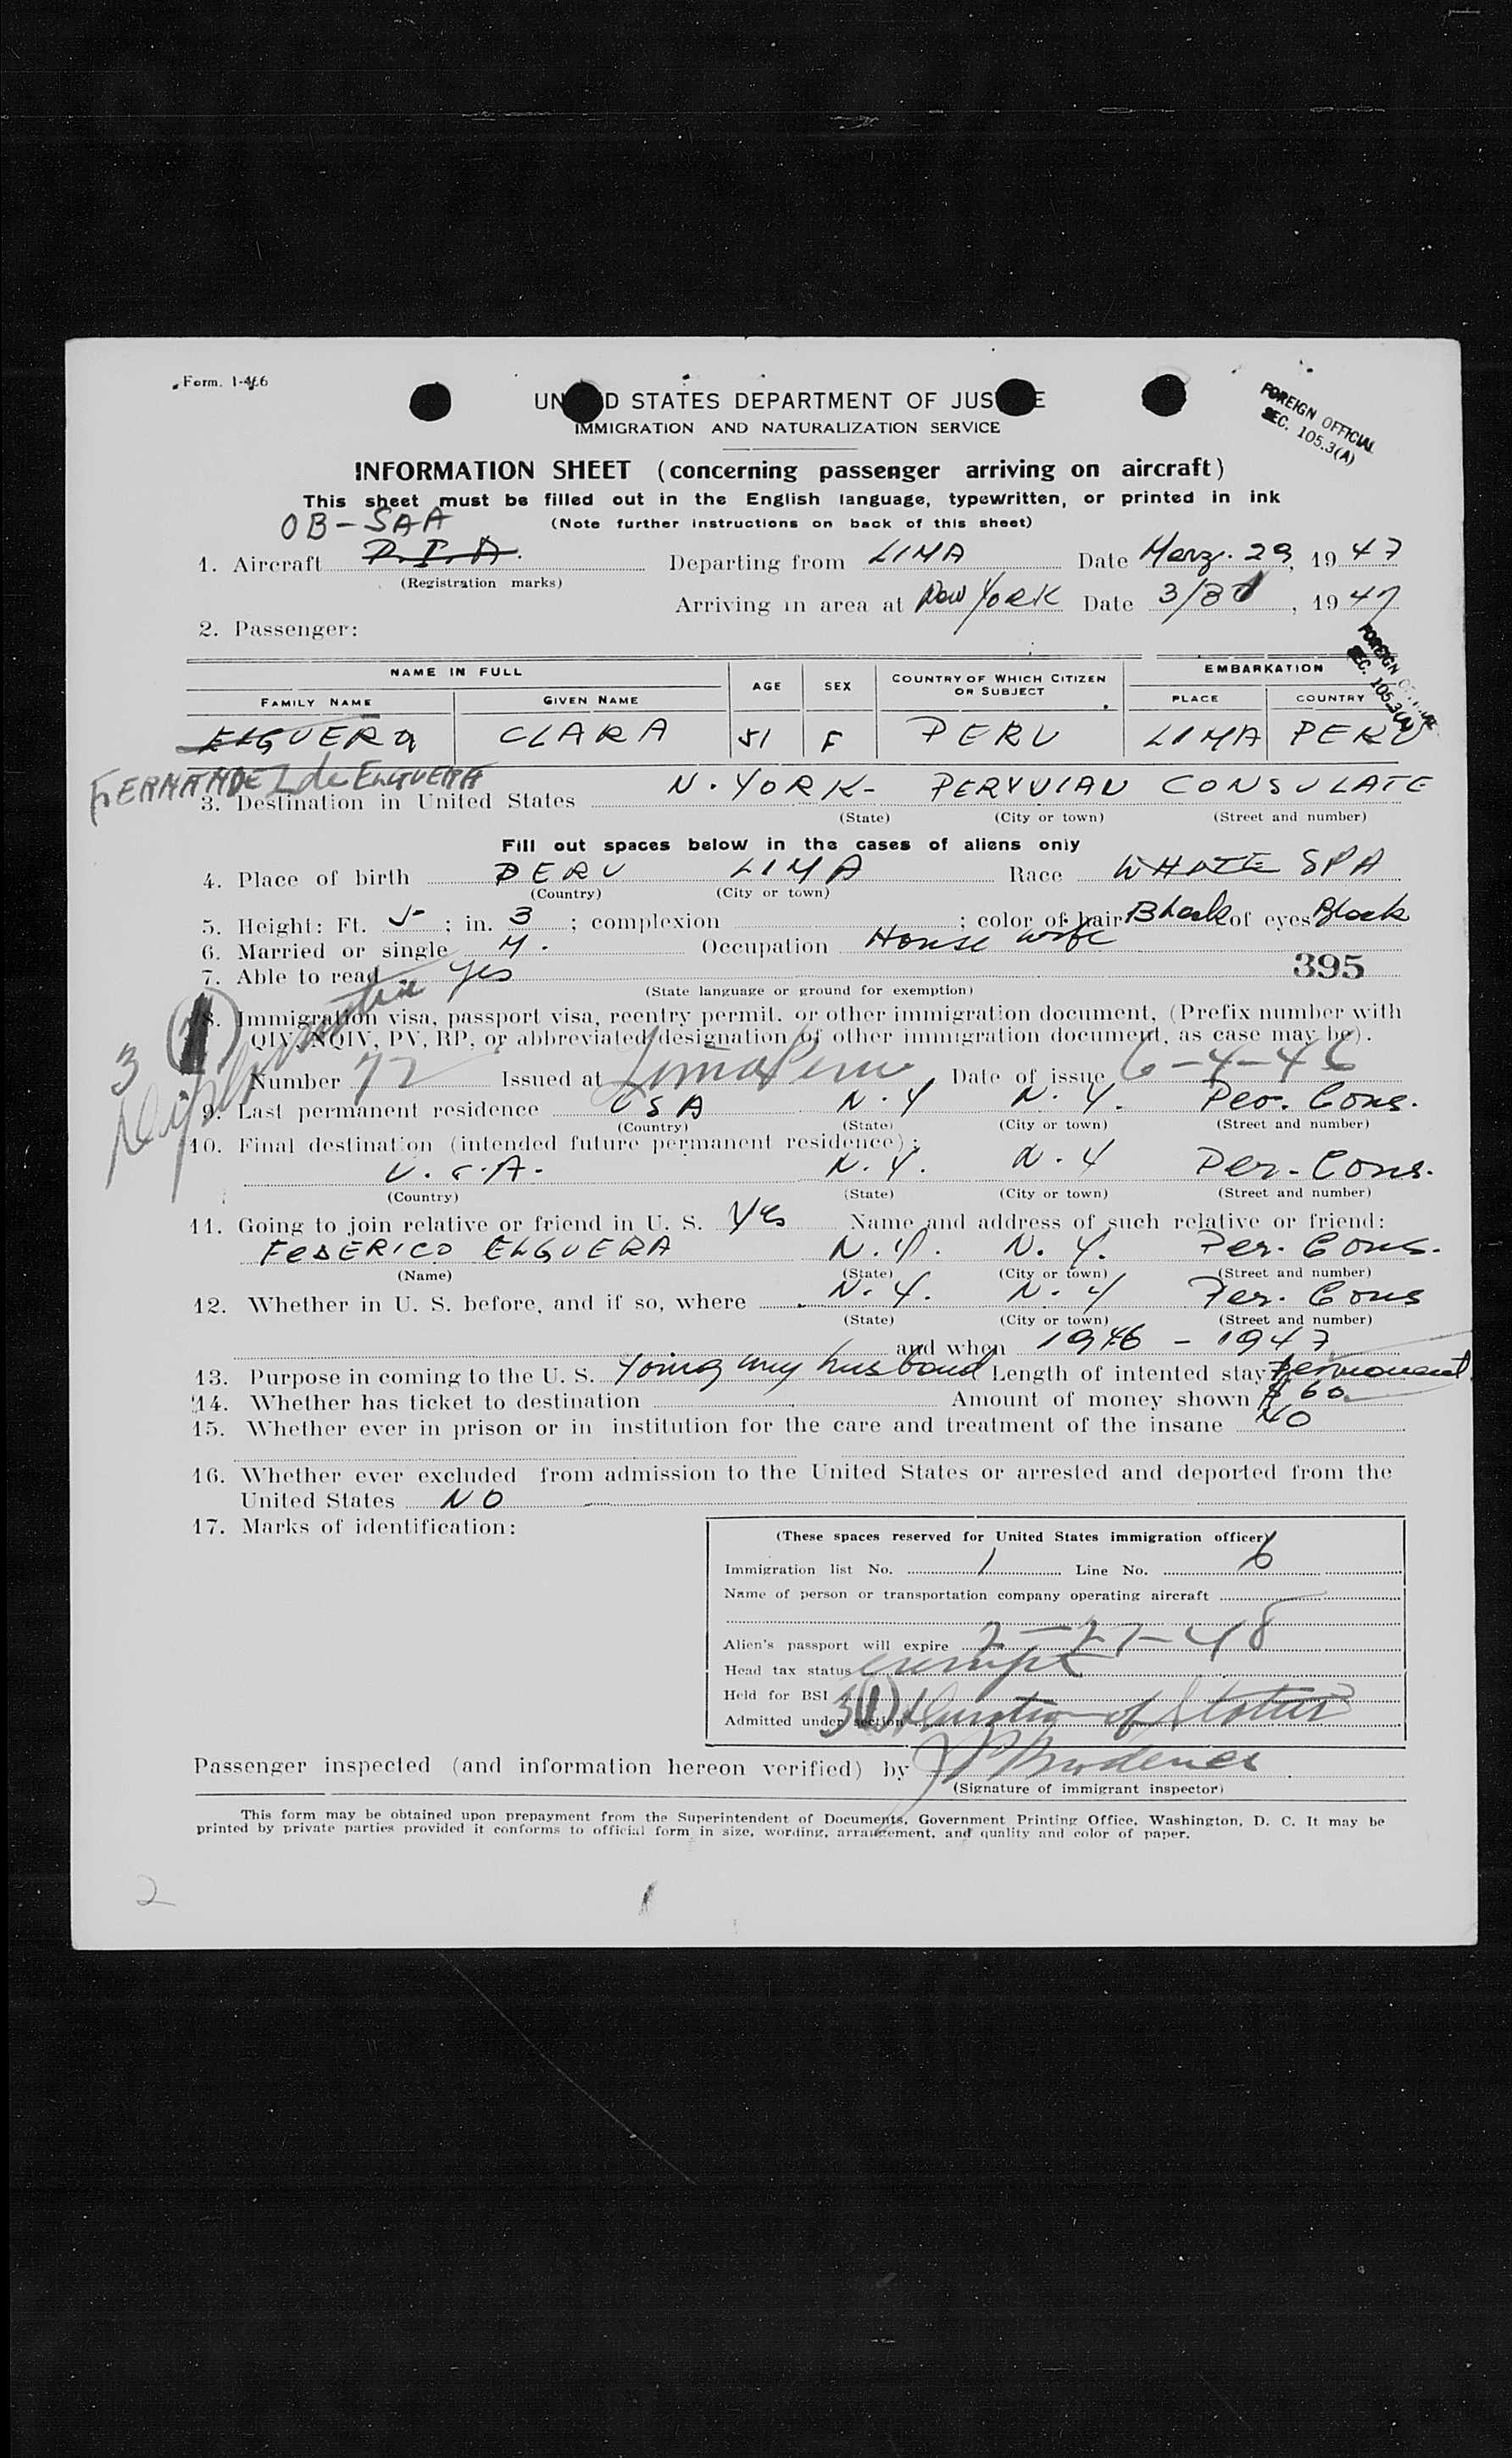 Form. I-466
UNITED STATES DEPARTMENT OF JUSTICE
IMMIGRATION AND NATURALIZATION SERVICE
FOREIGN OFFICIAL
SEC. 105.3(A)
INFORMATION SHEET (concerning passenger arriving on aircraft)
This sheet must be filled out in the English language, typewritten, or printed in ink
(Note further instructions on back of this sheet)
OB-SAA
1. Aircraft P.I.A. Departing from LIMA Date Marz. 29, 1947
(Registration marks)
Arriving in area at New York Date 3/31, 1947
2. Passenger:
FOREIGN OFFICIAL
SEC. 105.3(A)
NAME IN FULL AGE SEX COUNTRY OF WHICH CITIZEN OR SUBJECT EMBARKATION
FAMILY NAME GIVEN NAME PLACE COUNTRY
ELGUERA CLARA 51 F PERU LIMA PERU
FERNANDEZ de ELGUERA
3. Destination in United States N. YORK - PERUVIAN CONSULATE
(State) (City or town) (Street and number)
Fill out spaces below in the cases of aliens only
4. Place of birth PERU LIMA Race WHITE SPA
(Country) (City or town)
5. Height: Ft. 5 ; in. 3 ; complexion ; color of hair Black of eyes Black
6. Married or single M. Occupation House wife
7. Able to read Yes 395
(State language or ground for exemption)
3(1)
8. Immigration visa, passport visa, reentry permit, or other immigration document, (Prefix number with
QIV, NQIV, PV, RP, or abbreviated designation of other immigration document, as case may be).
Number 72 Issued at Lima Peru Date of issue 6-4-46
9. Last permanent residence USA N.Y N.Y. Per. Cons.
(Country) (State) (City or town) (Street and number)
10. Final destination (intended future permanent residence):
U.S.A. N.Y. N.Y Per. Cons.
(Country) (State) (City or town) (Street and number)
11. Going to join relative or friend in U. S. Yes Name and address of such relative or friend:
FEDERICO ELGUERA N.Y. N.Y. Per. Cons.
(Name) (State) (City or town) (Street and number)
12. Whether in U. S. before, and if so, where N.Y. N.Y Per. Cons
(State) (City or town) (Street and number)
and when 1946 - 1947
13. Purpose in coming to the U. S. Yoing my husband Length of intented stay Permanent
14. Whether has ticket to destination Amount of money shown $ 60
15. Whether ever in prison or in institution for the care and treatment of the insane NO
16. Whether ever excluded from admission to the United States or arrested and deported from the
United States NO
17. Marks of identification:
(These spaces reserved for United States immigration officer)
Immigration list No. 1 Line No. 6
Name of person or transportation company operating aircraft
Alien's passport will expire 2-27-48
Head tax status exempt
Held for BSI
Admitted under section 3(1) Duration of Status
Passenger inspected (and information hereon verified) by
(Signature of immigrant inspector)
This form may be obtained upon prepayment from the Superintendent of Documents, Government Printing Office, Washington, D. C. It may be
printed by private parties provided it conforms to official form in size, wording, arrangement, and quality and color of paper.
2